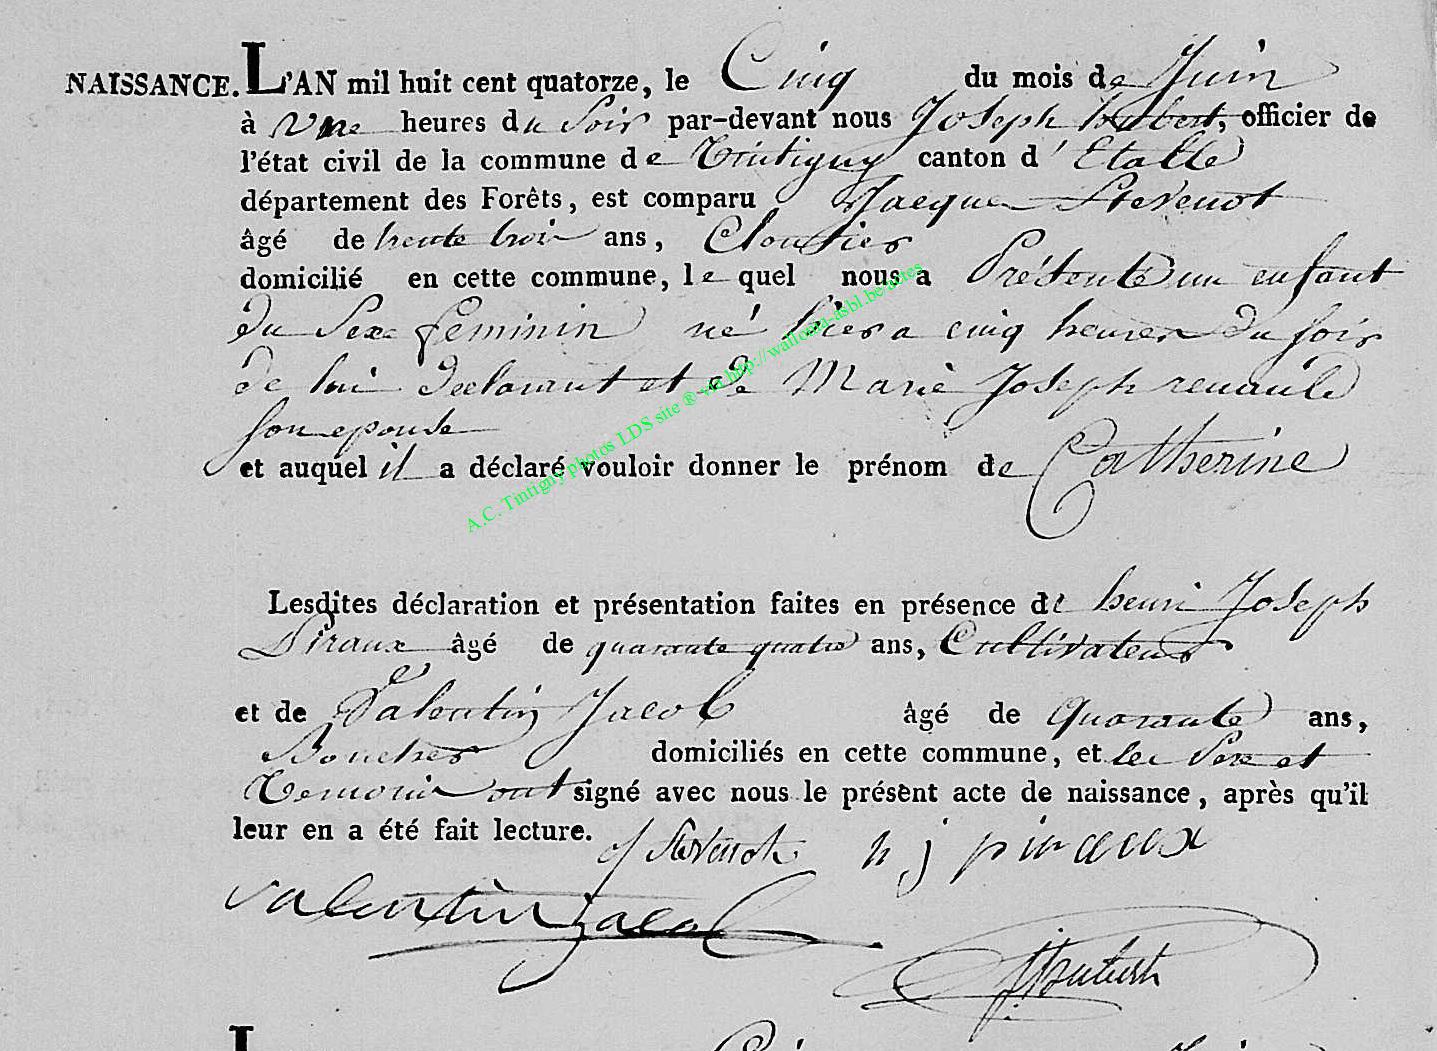 NAISSANCE. L'AN mil huit cent quatorze, le Cinq du mois de Juin
à une heures du Soir par-devant nous Joseph hubert, officier de
l'état civil de la commune de Tintigny canton d' Etalle
département des Forêts, est comparu Jacques Stevenot
âgé de trente trois ans, Cloutier
domicilié en cette commune, le quel nous a Présenté un enfant
du Sexe feminin né hier a cinq heures du soir
de lui declarant et de Marie Joseph renauld
son epouse
et auquel il a déclaré vouloir donner le prénom de Catherine
Lesdites déclaration et présentation faites en présence de henri Joseph
Piraux âgé de quarante quatre ans, Cultivateur
et de Valentin Jacob âgé de Quarante ans,
Boucher domiciliés en cette commune, et les Pere et
Temoins ont signé avec nous le présent acte de naissance, après qu'il
leur en a été fait lecture. J Stevenot h j piraux
valentin jacob
J hubert
A.C. Tintigny photos LDS site ® via http://wallonia-asbl.be/actes